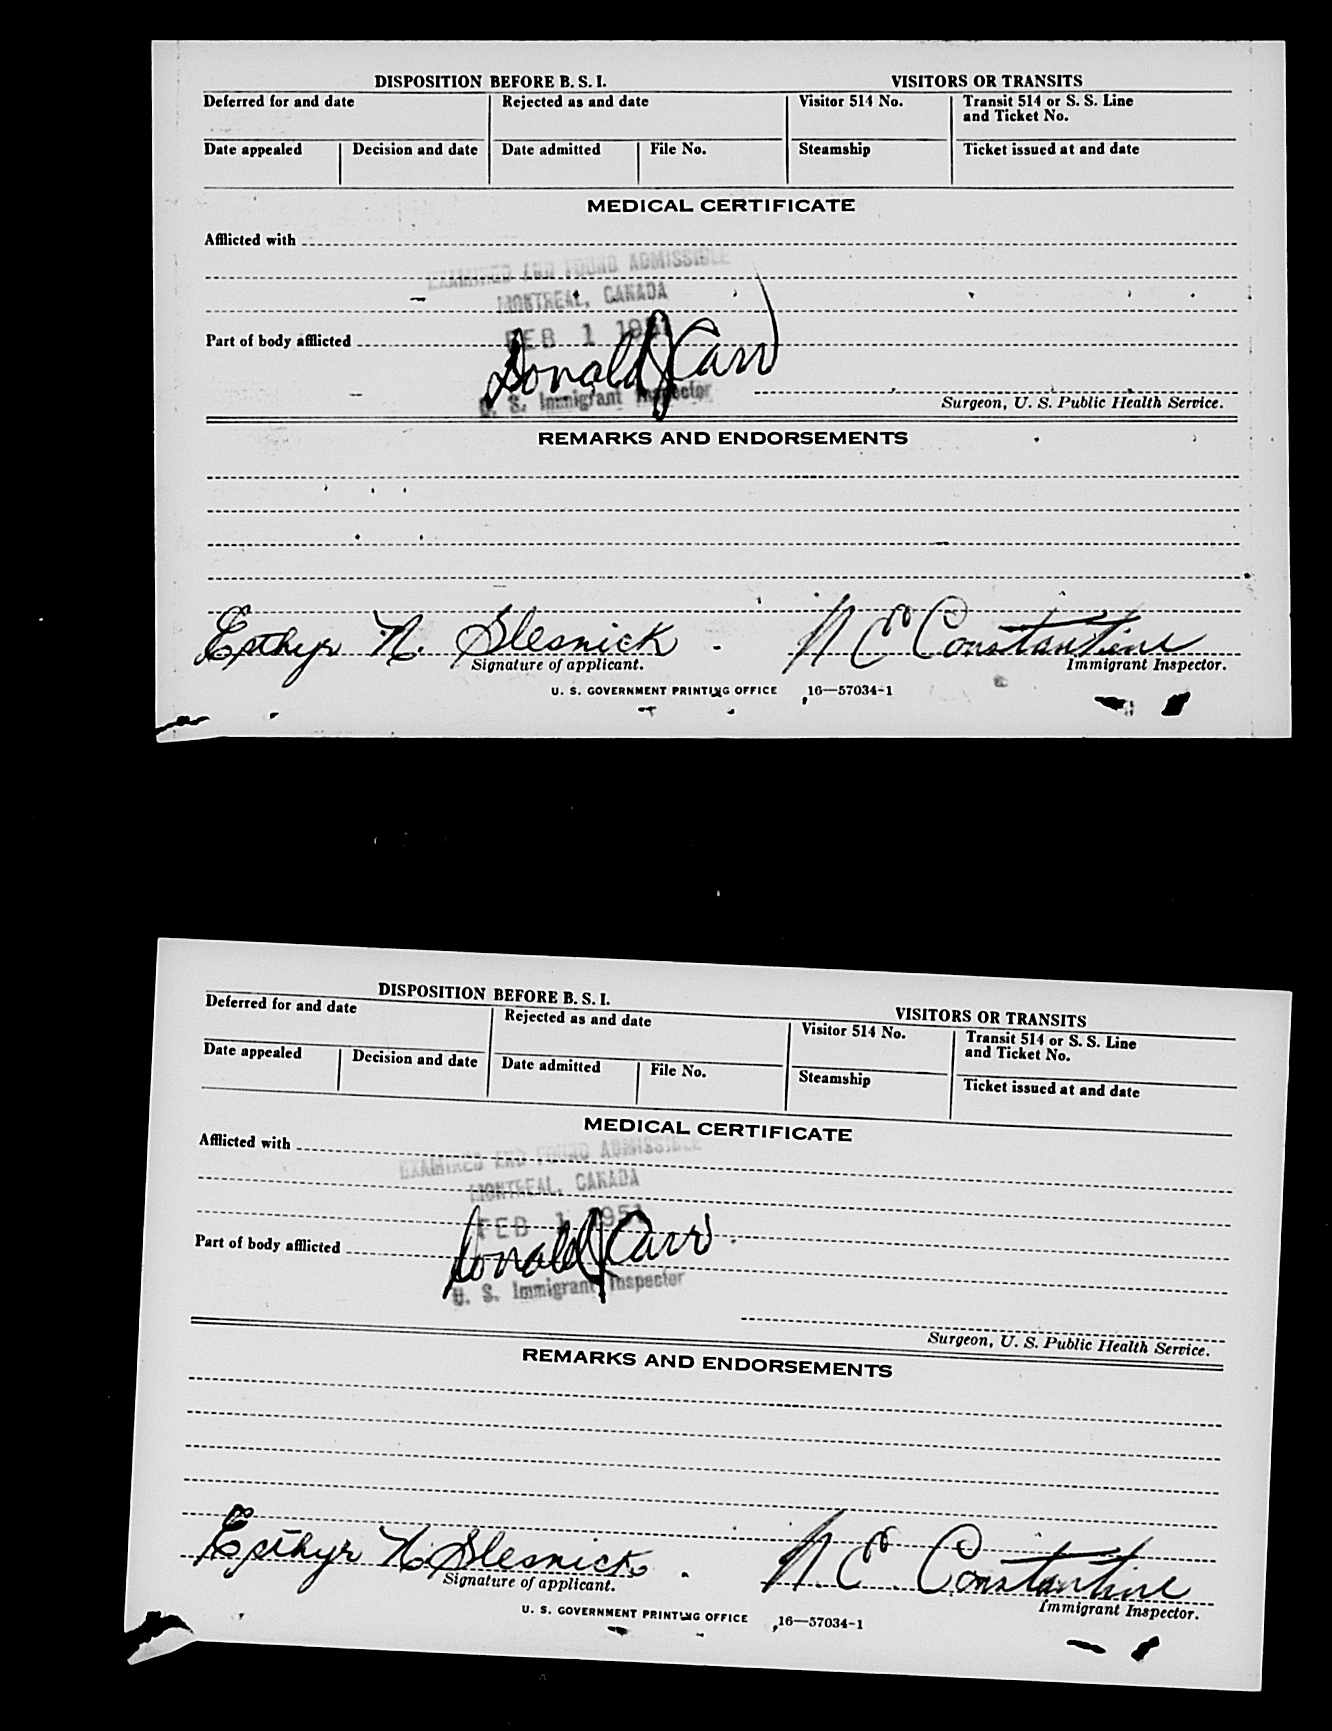 DISPOSITION BEFORE B. S. I. VISITORS OR TRANSITS
Deferred for and date Rejected as and date Visitor 514 No. Transit 514 or S. S. Line
and Ticket No.
Date appealed Decision and date Date admitted File No. Steamship Ticket issued at and date
MEDICAL CERTIFICATE
Afflicted with
EXAMINED AND FOUND ADMISSIBLE
MONTREAL, CANADA
FEB 1 1951
Part of body afflicted
Donald J Carr
U. S. Immigrant Inspector
Surgeon, U. S. Public Health Service.
REMARKS AND ENDORSEMENTS
Esthyr N. Slesnick N E Constantine
Signature of applicant. Immigrant Inspector.
U. S. GOVERNMENT PRINTING OFFICE 16—57034-1
DISPOSITION BEFORE B. S. I. VISITORS OR TRANSITS
Deferred for and date Rejected as and date Visitor 514 No. Transit 514 or S. S. Line
and Ticket No.
Date appealed Decision and date Date admitted File No. Steamship Ticket issued at and date
MEDICAL CERTIFICATE
Afflicted with
EXAMINED AND FOUND ADMISSIBLE
MONTREAL, CANADA
FEB 1 1951
Part of body afflicted
Donald J Carr
U. S. Immigrant Inspector
Surgeon, U. S. Public Health Service.
REMARKS AND ENDORSEMENTS
Esthyr N. Slesnick N. E. Constantine
Signature of applicant. Immigrant Inspector.
U. S. GOVERNMENT PRINTING OFFICE 16—57034-1